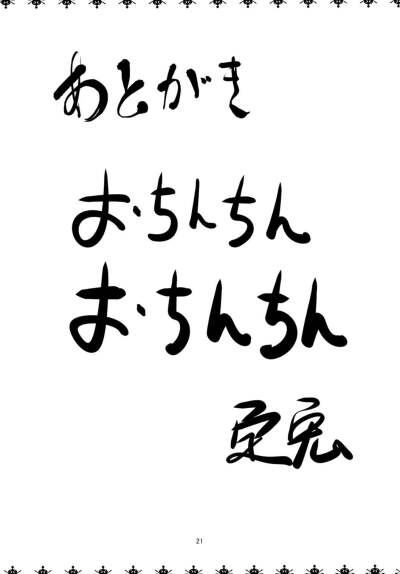 あとがき
おちんちん
おちんちん
21